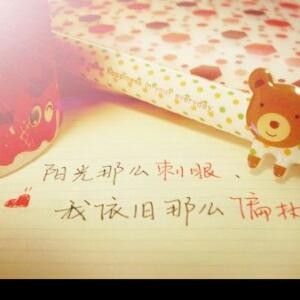 阳光那么刺眼、
我依旧那么偏执